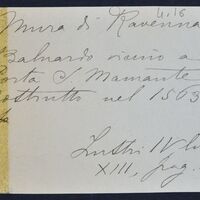 4.16
Mura di Ravenna
Baluardo vicino a
Porta S. Mamante
costrutto nel 1503
XIII, pag.